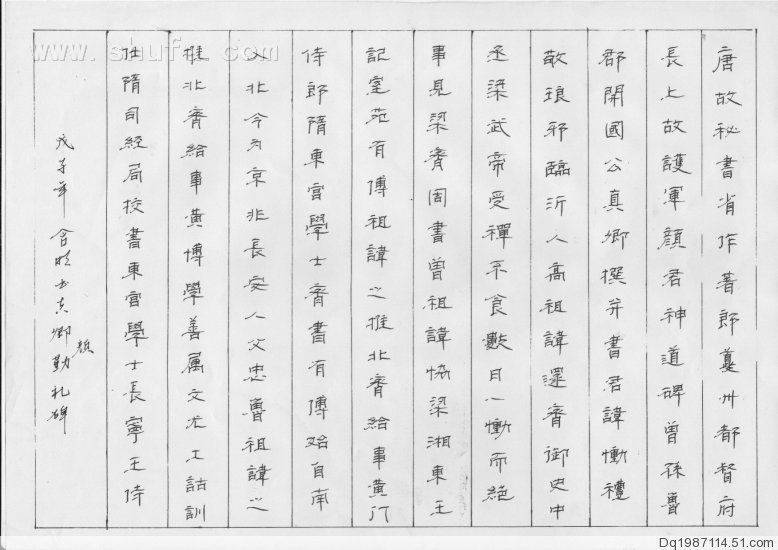 唐故秘書省作著郎夔州都督府
長上故護軍顏君神道碑曾孫魯
郡開國公真卿撰并書君諱懃禮
敬琅邪臨沂人高祖諱還齊御史中
丞梁武帝受禪不食數日一慟而絕
事見梁齊周書曾祖諱協梁湘東王
記室苑有傅祖諱之推北齊給事黃门
侍郎隋東宫學士齊書有傅始自南
入北今为京兆長安人父思魯祖諱之
推北齊給事黃博學善属文尤工詁訓
仕隋司經局校書東宫學士長寧王侍
戊子年 书真卿勤礼碑
顏
www.shufa.com
Dq1987114.51.com